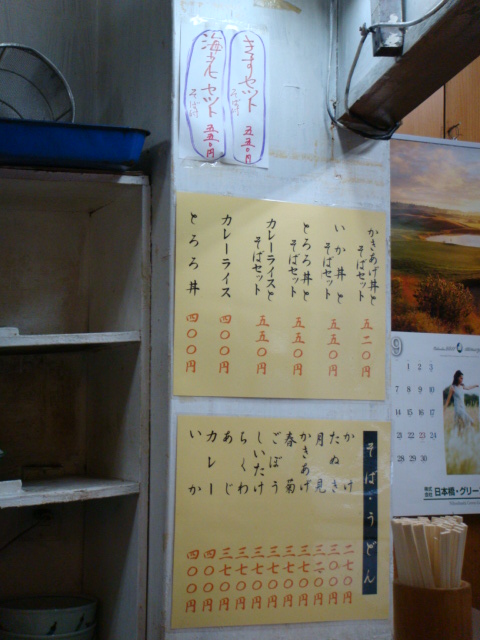 きす セット そば付 五五〇円
海老 セット そば付 五五〇円
かきあげ丼と そばセット 五二〇円
いか丼と そばセット 五五〇円
とろろ丼と そばセット 五五〇円
カレーライスと そばセット 五五〇円
カレーライス 四〇〇円
とろろ丼 四〇〇円
そば・うどん
かけ 二七〇円
たぬき 三〇〇円
月見 三二〇円
かきあげ 三七〇円
春菊 三七〇円
ごぼう 三七〇円
しいたけ 三七〇円
ちくわ 三七〇円
あじ 三七〇円
カレー 四〇〇円
いか 四〇〇円
9
1 2 3
7 8 9 10
14 15 16 17
21 22 23 24
28 29 30
株式会社 日本橋・グリー